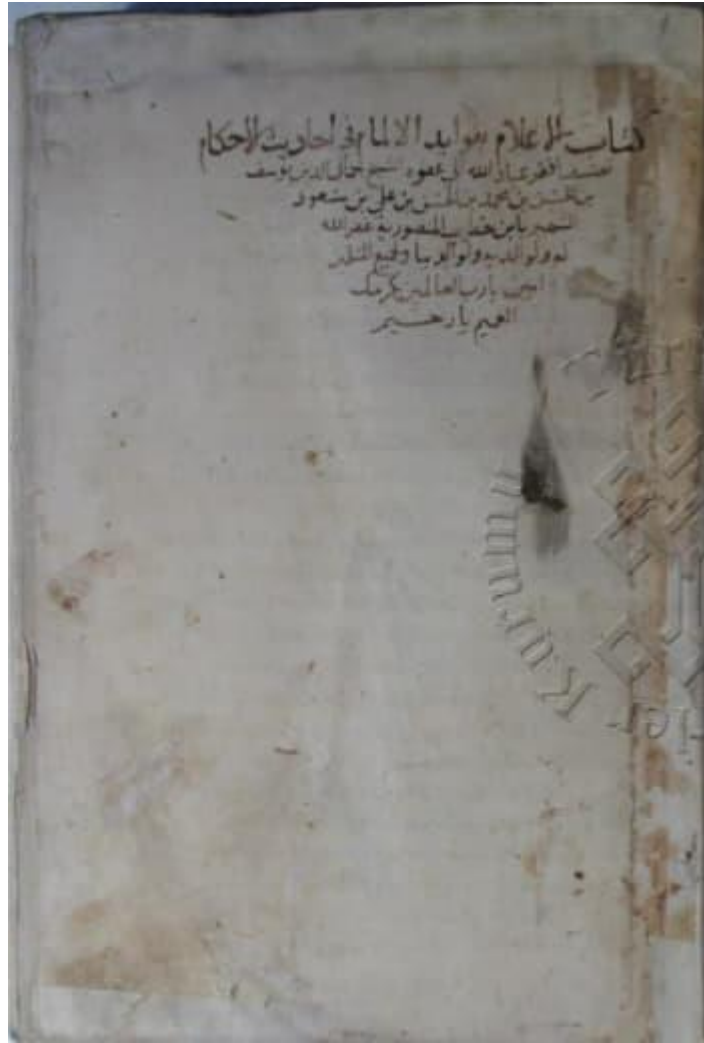 كتاب الاعلام بفوايد الالمام في احاديث الاحكام
تصنيف افقر عباد الله الى عفوه الشيخ جمال الدين يوسف
بن الحسن بن محمد بن الحسن بن علي بن مسعود
الشهير بابن خطيب المنصورية غفر الله
له ولوالديه ولوالديها وجميع المسلمين
امين يارب العالمين بكرمك
العميم يا رحيم